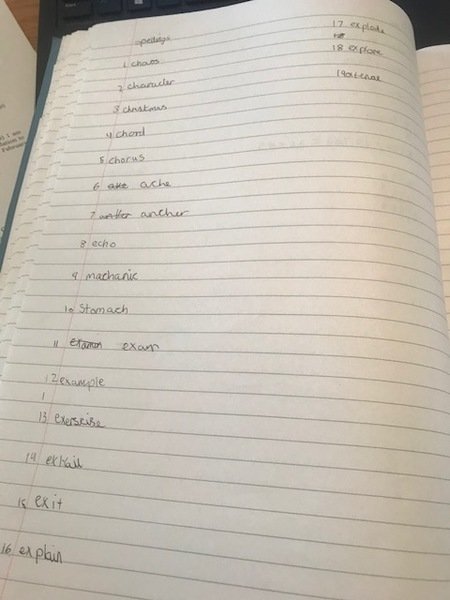 spellings
1 chaos
2 character
3 christmas
4 chord
5 chorus
6 ache
7 ancher
8 echo
9 machanic
10 Stomach
11 exam
12 example
1
13 exerscise
14 exhail
15 exit
16 explain
17 explode
18 explore
19